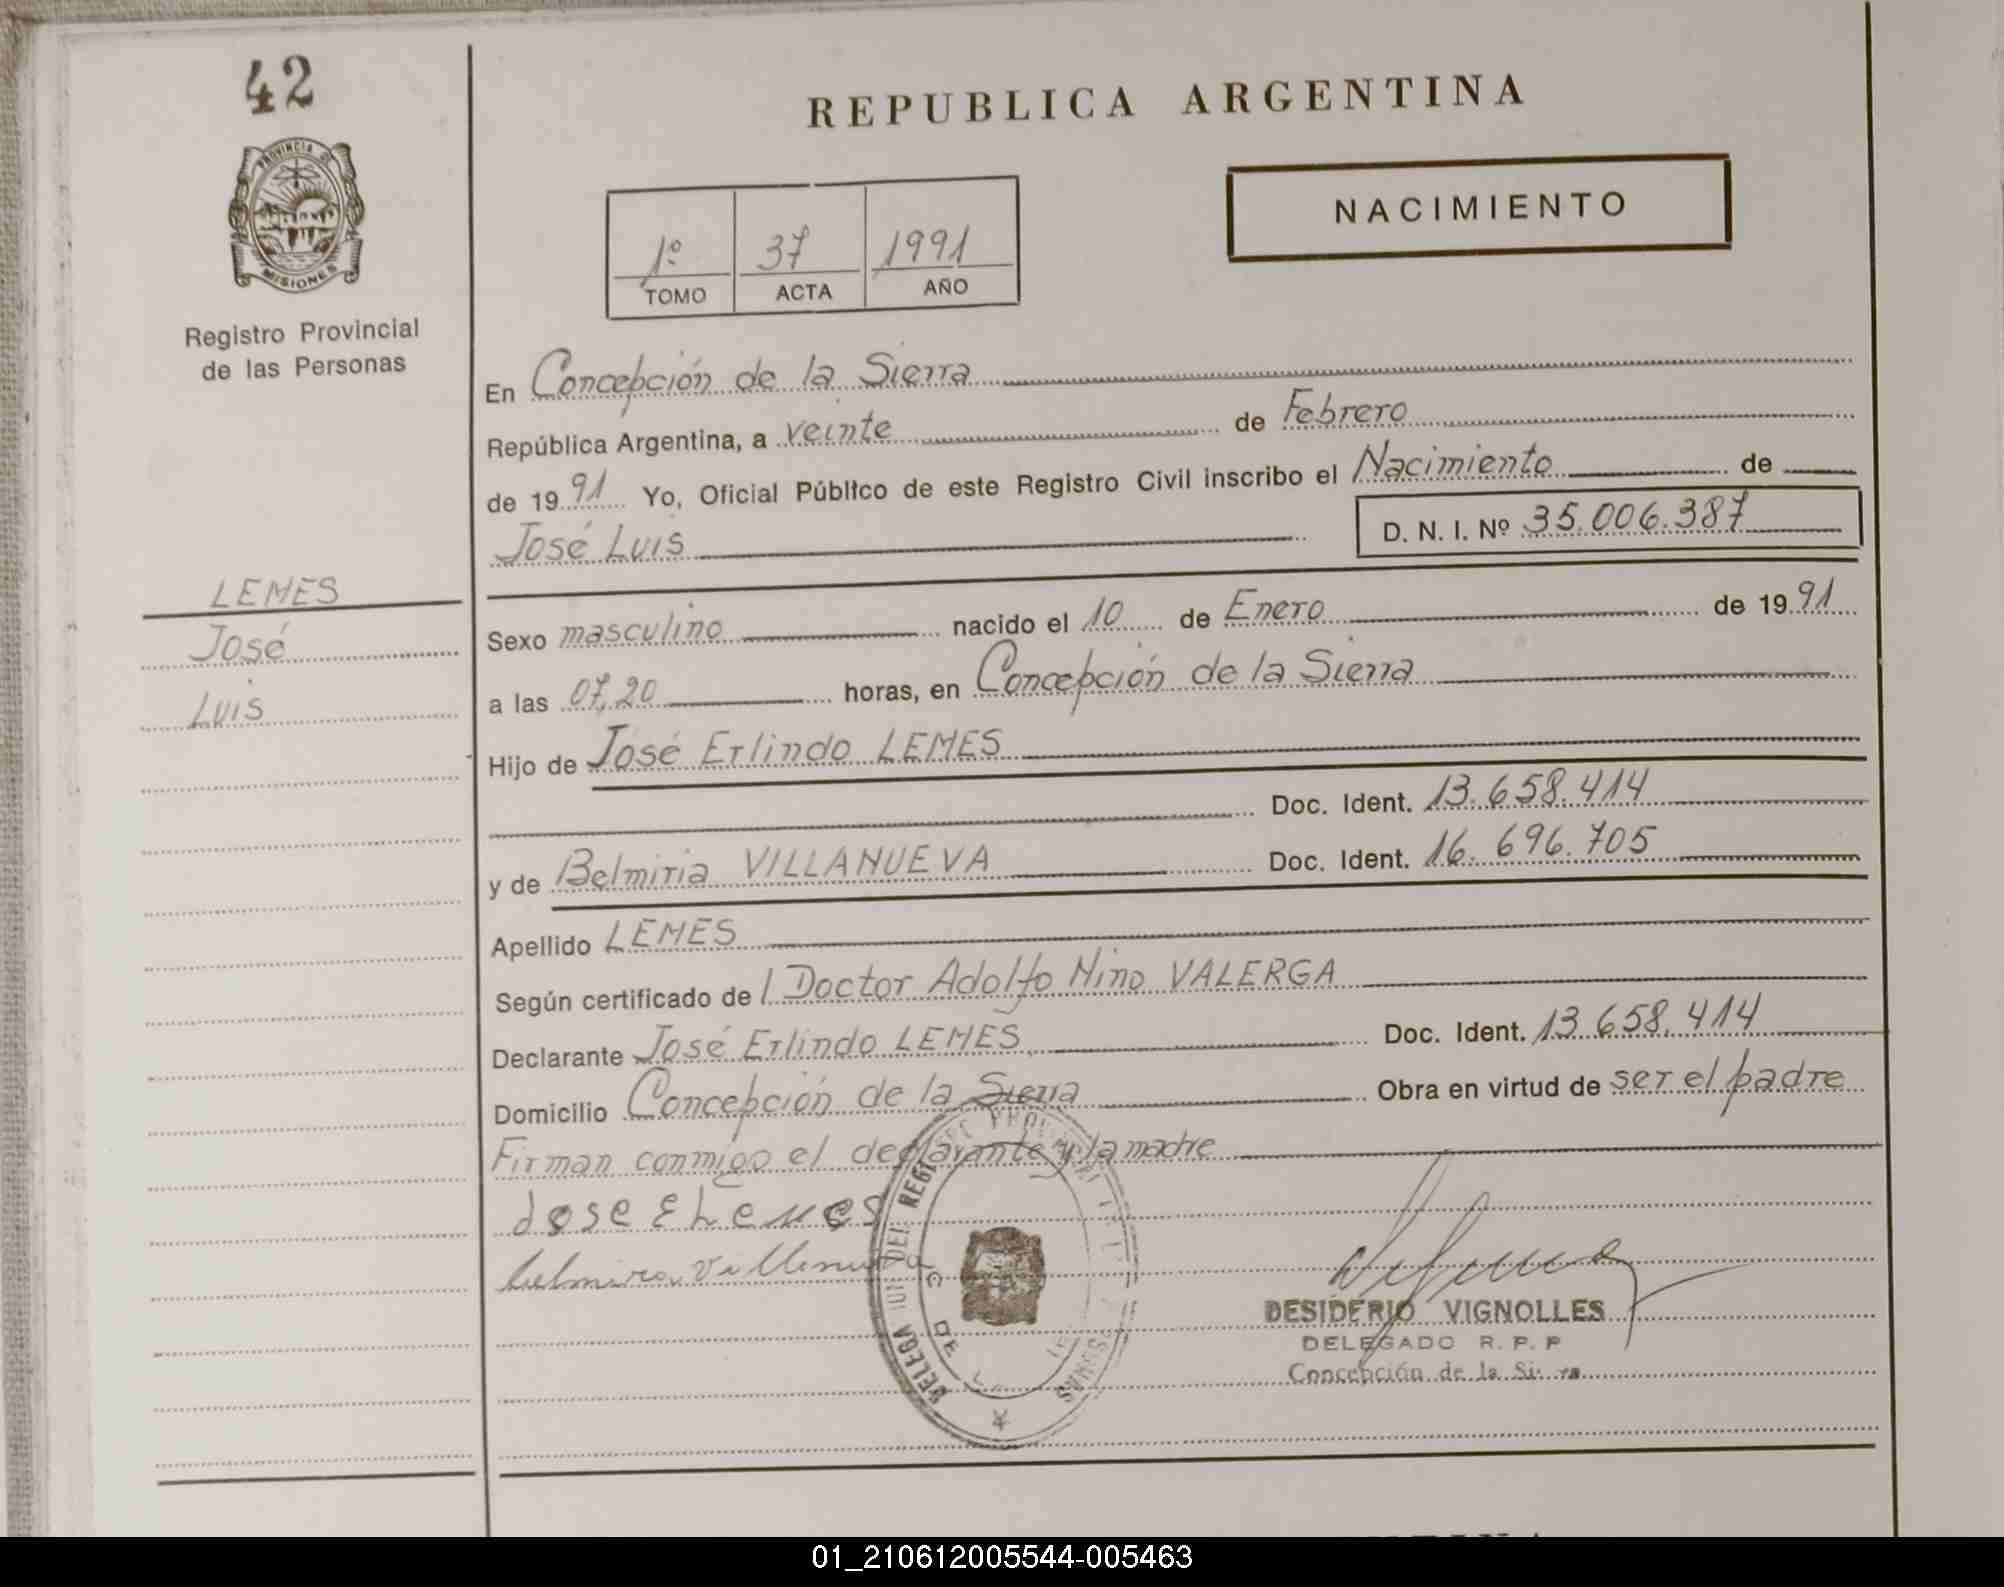 42
PROVINCIA DE
MISIONES
Registro Provincial
de las Personas
LEMES
José
Luis
REPUBLICA ARGENTINA
NACIMIENTO
1º 37 1991
TOMO ACTA AÑO
En Concepción de la Sierra
República Argentina, a veinte de Febrero
de 19 91 Yo, Oficial Público de este Registro Civil inscribo el Nacimiento de
José Luis D. N. I. Nº 35.006.387
Sexo masculino nacido el 10 de Enero de 19 91
a las 07,20 horas, en Concepción de la Sierra
Hijo de José Erlindo LEMES
Doc. Ident. 13.658.414
y de Belmiria VILLANUEVA Doc. Ident. 16.696.705
Apellido LEMES
Según certificado de l Doctor Adolfo Nino VALERGA
Declarante José Erlindo LEMES Doc. Ident. 13.658.414
Domicilio Concepción de la Sierra Obra en virtud de ser el padre
Firman conmigo el declarante y la madre
Jose E Lemes
belmira villanueva
DESIDERIO VIGNOLLES
DELEGADO R. P. P
Concepción de la
01_210612005544-005463